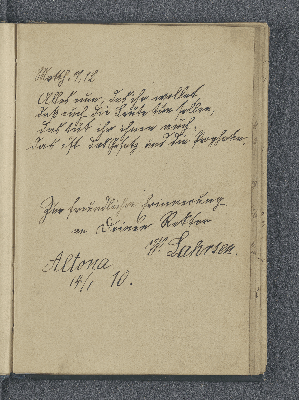 Matth. 7, 12
Alles nun, das ihr wollet,
daß euch die Leute tun sollen,
das tut ihr ihnen auch,
das ist das Gesetz und die Propheten.
Zur freundlichen Erinnerung
an Deinen Rektor
W. Lahrsen.
Altona
14/1 10.